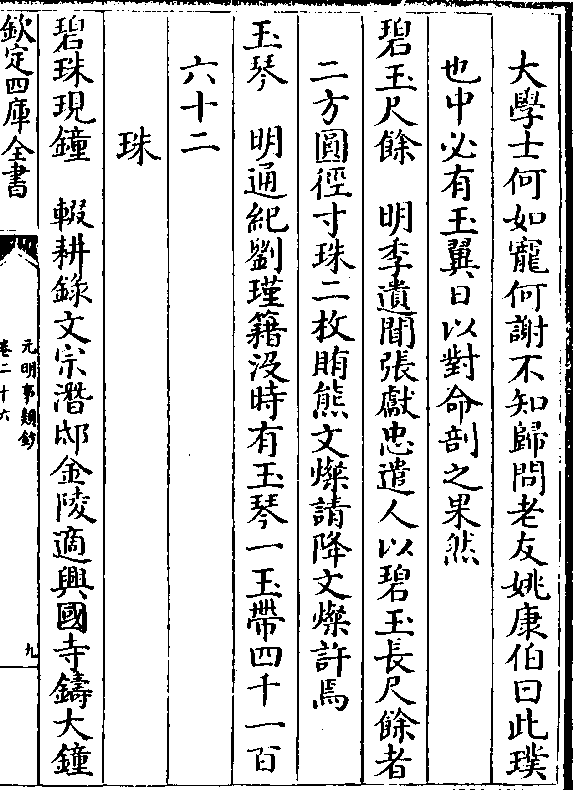 大學士何如寵何謝不知歸問老友姚康伯曰此璞
也中必有玉翼日以對命剖之果然
碧玉尺餘　明季遺聞張獻忠遣人以碧玉長尺餘者
二方圓徑寸珠二枚賄熊文燦請降文燦許焉
玉琴　明通紀劉瑾籍没時有玉琴一玉帶四千一百
六十二
珠
碧珠現鐘　輟耕錄文宗潛邸金陵適興國寺鑄大鐘
欽定四庫全書
元明事類鈔
卷二十六
九